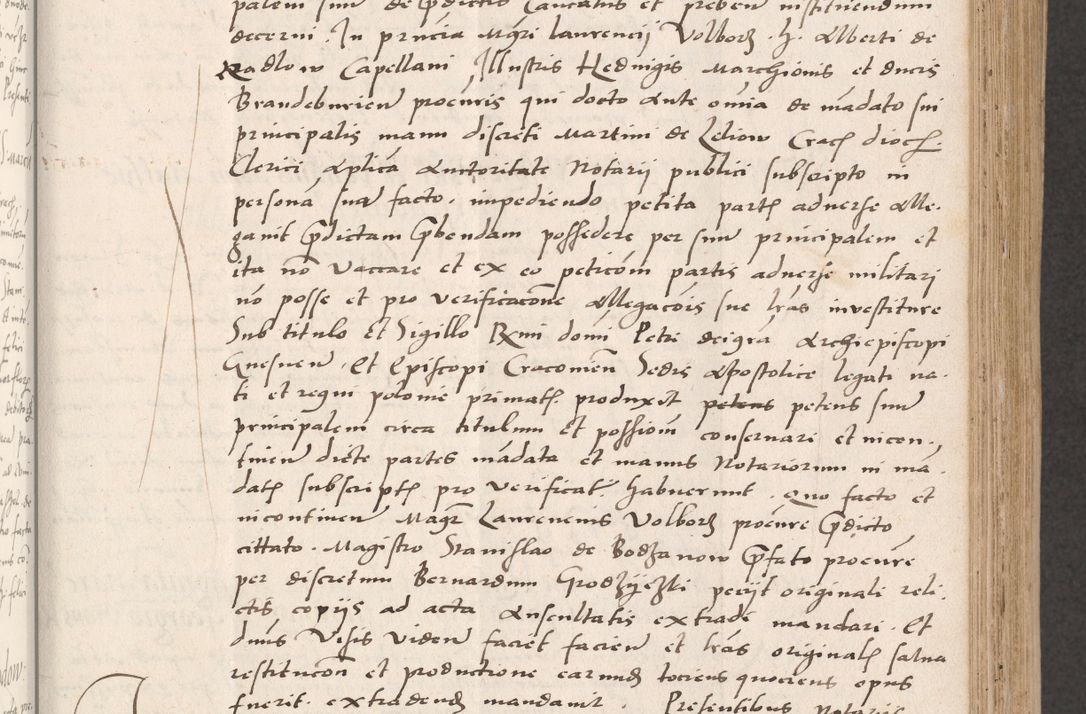 palem suum de p̄dictis Causatus et preben̄ instituendum
decerni. In pn̄cia Mgr̄i Laurencij Volborz. h. Alberti de
Radlow Capellani Illustris Hedvigis Marchionis et ducis
Brandeburien̄ procuris qui docto Ante omīa de mādato sui
principalis manu discreti Martini de Leliow Crac̄ dioc̄.
Clerici Aplicā Auctoritate Notarij publici subscripto in
persona sua facto. impediendo petita part̄ adverse Alle-
gavit p̄dictam p̄bendam possedere per suum principalem et
ita nō vaccare et ex eo peticōm partis adverse militari
nō posse et pro verificacōne Allegacōis sue lr̄as investiture
Sub titulo et Sigillo Rx̄mi domi Petri deigrā Archiepiscopi
Gnesnen̄. Et Episcopi Cracovien̄ Sedis Apostolice legati na-
ti et regni polonie primat̄ produxit petens petens suum
principalem circa titulum et possiom̄ conservari et incon-
tinen̄ dicte partes mādata et manus Notariorum in mā-
dat̄ subscript̄ pro verificat̄ habuerunt. Quo facto et
incontinen̄ Magr̄ Laurencius Volborz procure p̄dicto
cittato. Magistro Stanislao de Bodzanow p̄fato procure
per discretum Bernardum Grodzijezki peciit originali reli-
ctis copijs ad acta Ascultatis extrade mandari. Et
dn̄us Visis Viden̄ faciet facien̄ et lr̄as original̄ salva
restitucōn et productione earund̄ tociens quociens opus
fuerit. extradend̄ mandavit. Presentibus Notariis